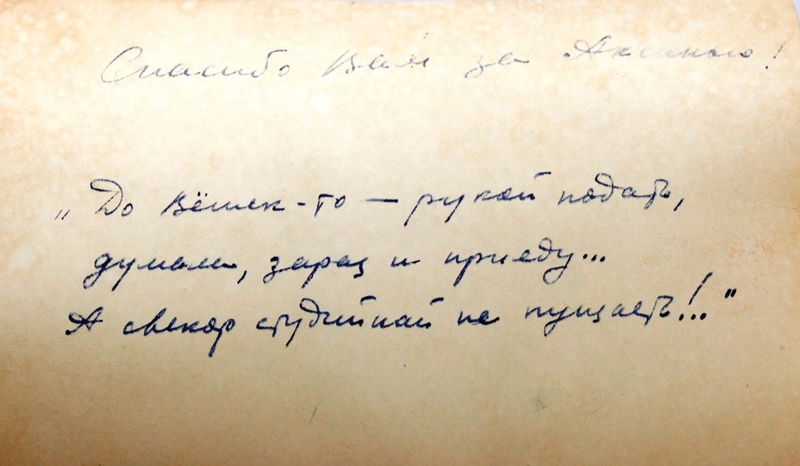 Спасибо Вам за Аксинью!
„До Вёшек-то — рукой подать,
думала, зараз и приеду...
А свекор студийнай не пущаеть!.."